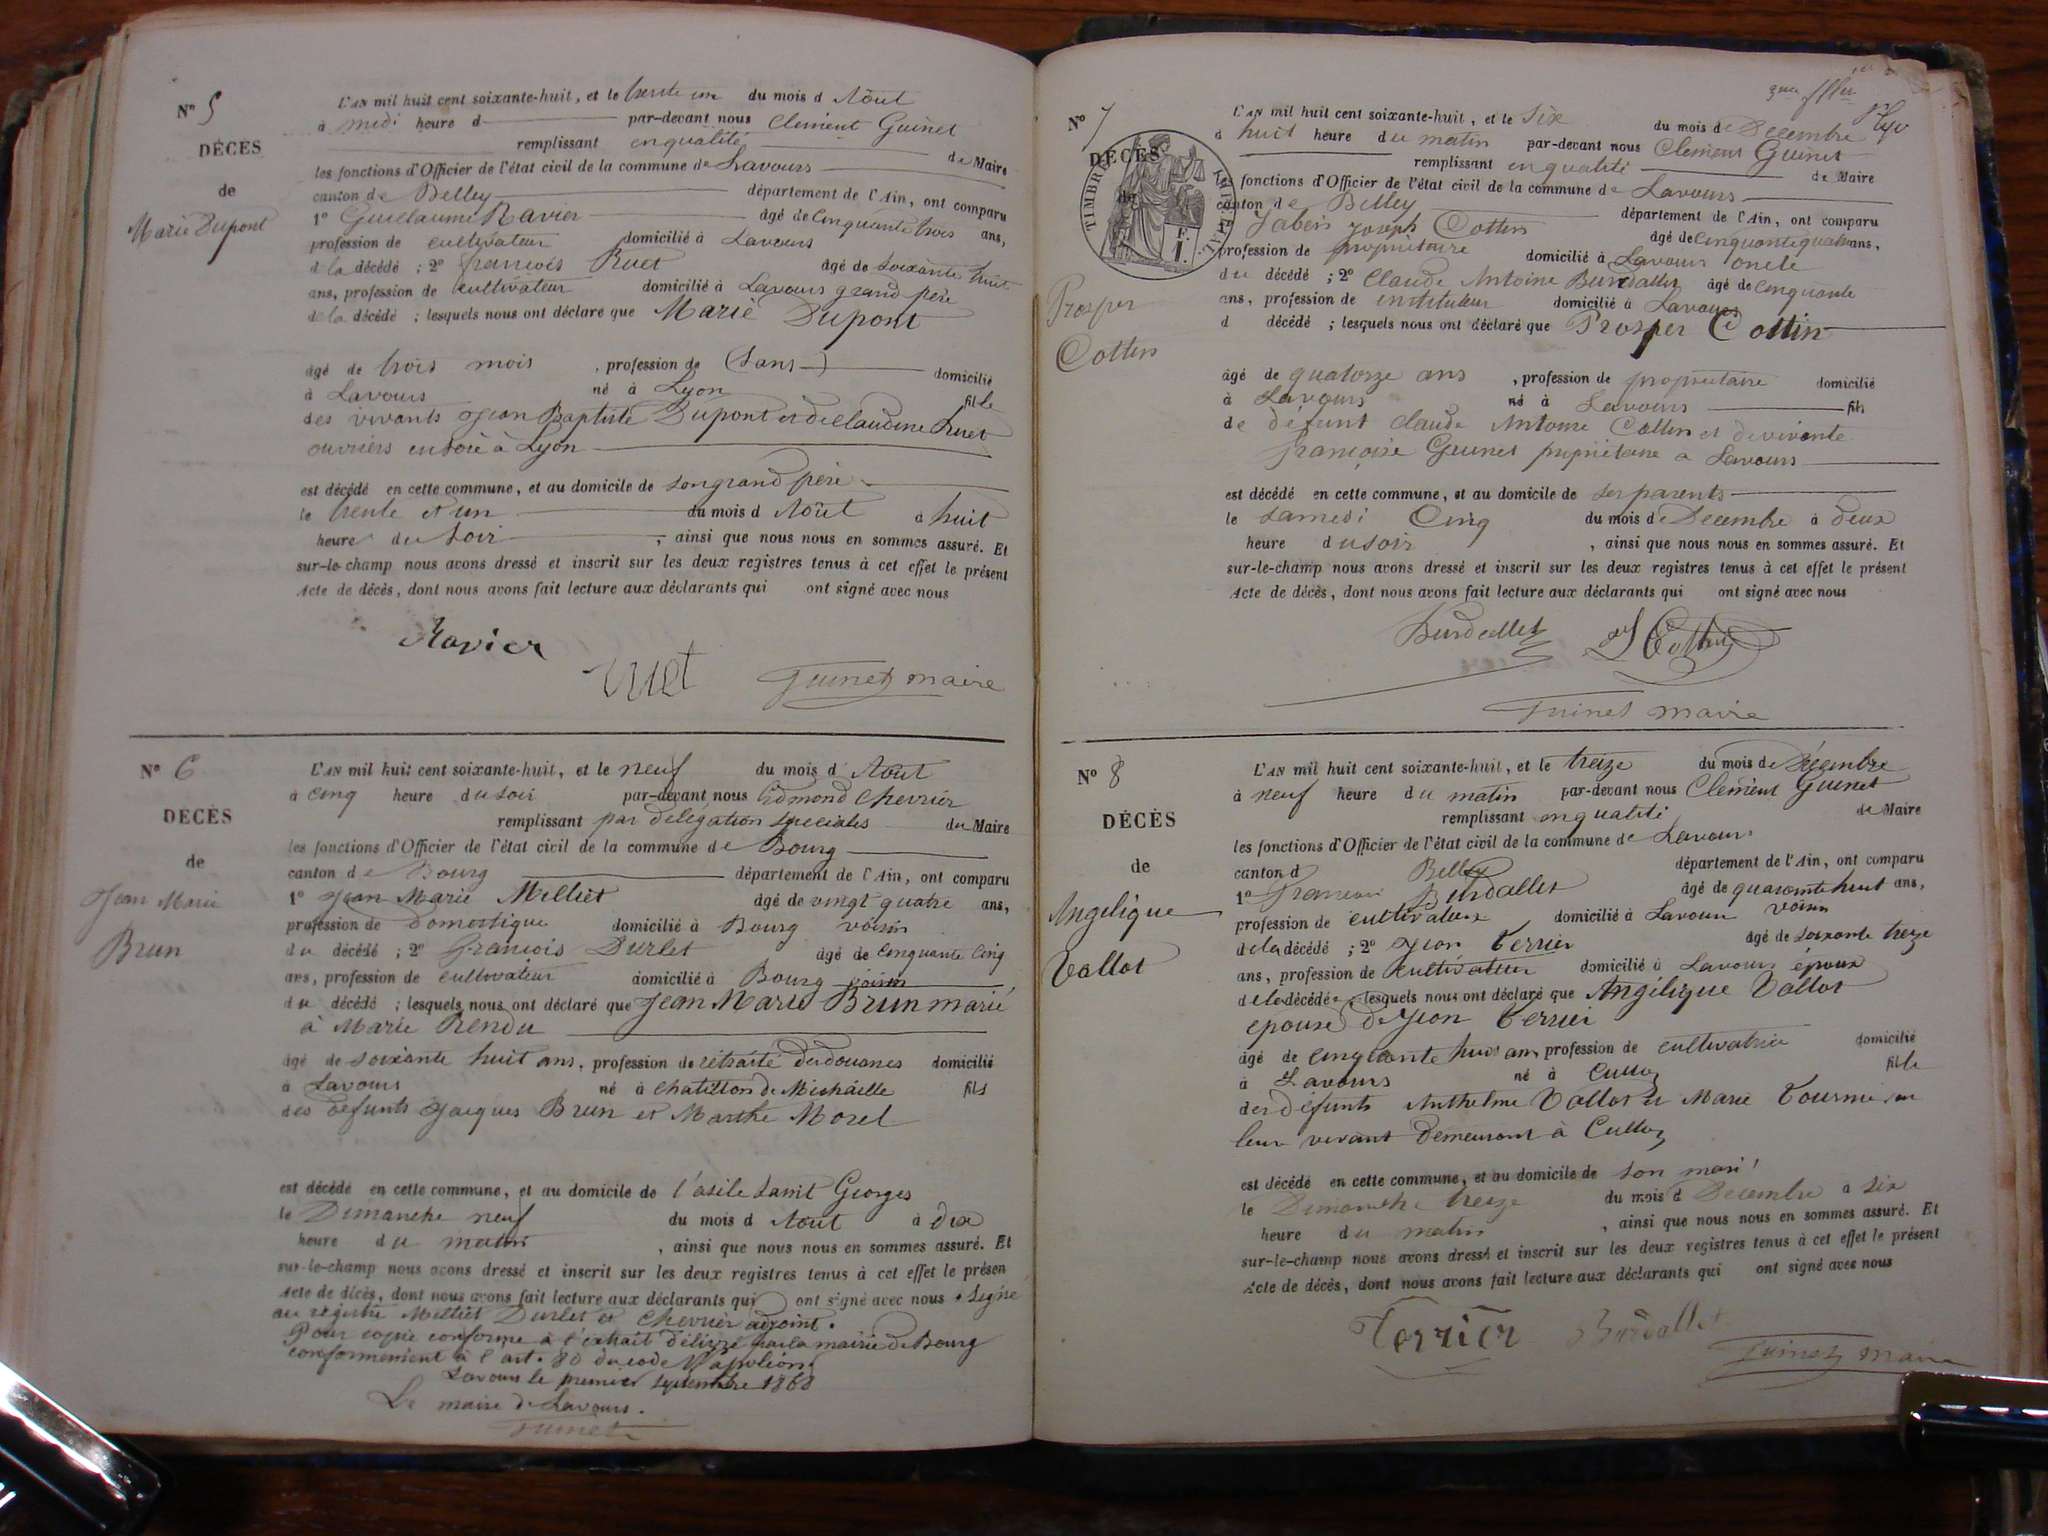 N° 5
DÉCÈS
de
Marie Dupont
L'AN mil huit cent soixante-huit, et le trente un du mois d Août
à midi heure d par-devant nous Clement Guinet
remplissant en qualité de Maire
les fonctions d'Officier de l'état civil de la commune de Lavours
canton de Belley département de l'Ain, ont comparu
1° Guillaume Ravier âgé de cinquante trois ans,
profession de cultivateur domicilié à Lavours
d la décédé ; 2° françois Ruet âgé de soixante huit
ans, profession de cultivateur domicilié à Lavours grand père
de la décédé ; lesquels nous ont déclaré que Marie Dupont
âgé de trois mois , profession de (sans) domicilié
à Lavours né à Lyon fille
des vivants Jean Baptiste Dupont et de Claudine Ruet
ouvriers en soie à Lyon
est décédé en cette commune, et au domicile de son grand père
le trente et un du mois d Août à huit
heure du soir , ainsi que nous nous en sommes assuré. Et
sur-le-champ nous avons dressé et inscrit sur les deux registres tenus à cet effet le présent
Acte de décès, dont nous avons fait lecture aux déclarants qui ont signé avec nous
Ravier
ruet Guinet maire
N° 6
DÉCÈS
de
Jean Marie
Brun
L'AN mil huit cent soixante-huit, et le neuf du mois d Août
à cinq heure du soir par-devant nous Edmond Chevrier
remplissant par délégation speciales du Maire
les fonctions d'Officier de l'état civil de la commune de Bourg
canton de Bourg département de l'Ain, ont comparu
1° Jean Marie Milliet âgé de vingt quatre ans,
profession de domestique domicilié à Bourg voisin
du décédé ; 2° françois Durlet âgé de cinquante cinq
ans, profession de cultivateur domicilié à Bourg voisin
du décédé ; lesquels nous ont déclaré que Jean Marie Brun marié
à Marie Rendu
âgé de soixante huit ans, profession de retraité des douanes domicilié
à Lavours né à Chatillon de Michaille fils
des defunts Jacques Brun et Marthe Morel
est décédé en cette commune, et au domicile de l'asile Saint Georges
le Dimanche neuf du mois d Août à dix
heure du matin , ainsi que nous nous en sommes assuré. Et
sur-le-champ nous avons dressé et inscrit sur les deux registres tenus à cet effet le présen
Acte de décès, dont nous avons fait lecture aux déclarants qui ont signé avec nous . Signé
au registre Milliet Durlet et Chevrier adjoint.
Pour copie conforme à l'extrait délivré par la mairie de Bourg
conformement à l'art. 80 du code Napoléon
Lavours le premier septembre 1868
Le maire de Lavours.
Guinet
N° 7
DÉCÈS
de
TIMBRE IMPÉRIAL
F.
1.
Prosper
Cottin
L'AN mil huit cent soixante-huit, et le six du mois de Decembre
à huit heure du matin par-devant nous Clement Guinet
remplissant en qualité de Maire
les fonctions d'Officier de l'état civil de la commune de Lavours
canton de Belley département de l'Ain, ont comparu
Joseph Cottin âgé de cinquante quatre ans,
profession de propriétaire domicilié à Lavours oncle
du décédé ; 2° Claude Antoine Burdallet âgé de cinquante
ans, profession de instituteur domicilié à Lavours
d décédé ; lesquels nous ont déclaré que Prosper Cottin
âgé de quatorze ans , profession de propriétaire domicilié
à Lavours né à Lavours fils
de défunt Claude Antoine Cottin et de vivante
françoise Guinet propriétaire a Lavours
est décédé en cette commune, et au domicile de ses parents
le samedi cinq du mois de Decembre à deux
heure du soir , ainsi que nous nous en sommes assuré. Et
sur-le-champ nous avons dressé et inscrit sur les deux registres tenus à cet effet le présent
Acte de décès, dont nous avons fait lecture aux déclarants qui ont signé avec nous
Burdallet Cottin
Guinet maire
N° 8
DÉCÈS
de
Angelique
Vallot
L'AN mil huit cent soixante-huit, et le treize du mois de Décembre
à neuf heure du matin par-devant nous Clement Guinet
remplissant en qualité de Maire
les fonctions d'Officier de l'état civil de la commune de Lavours
canton d Belley département de l'Ain, ont comparu
1° francois Burdallet âgé de quarante huit ans,
profession de cultivateur domicilié à Lavours voisin
de la décédé ; 2° Jean Terrier âgé de soixante treize
ans, profession de cultivateur domicilié à Lavours époux
de la décédé ; lesquels nous ont déclaré que Angelique Vallot
epouse de Jean Terrier
âgé de cinquante huit ans profession de cultivatrice domicilié
à Lavours né à Culloz fille
des défunts Anthelme Vallot et Marie Tournier en
leur vivant demeurant à Culloz
est décédé en cette commune, et au domicile de son mari
le Dimanche treize du mois d Decembre à six
heure du matin , ainsi que nous nous en sommes assuré. Et
sur-le-champ nous avons dressé et inscrit sur les deux registres tenus à cet effet le présent
Acte de décès, dont nous avons fait lecture aux déclarants qui ont signé avec nous
Terrier Burdallet
Guinet maire